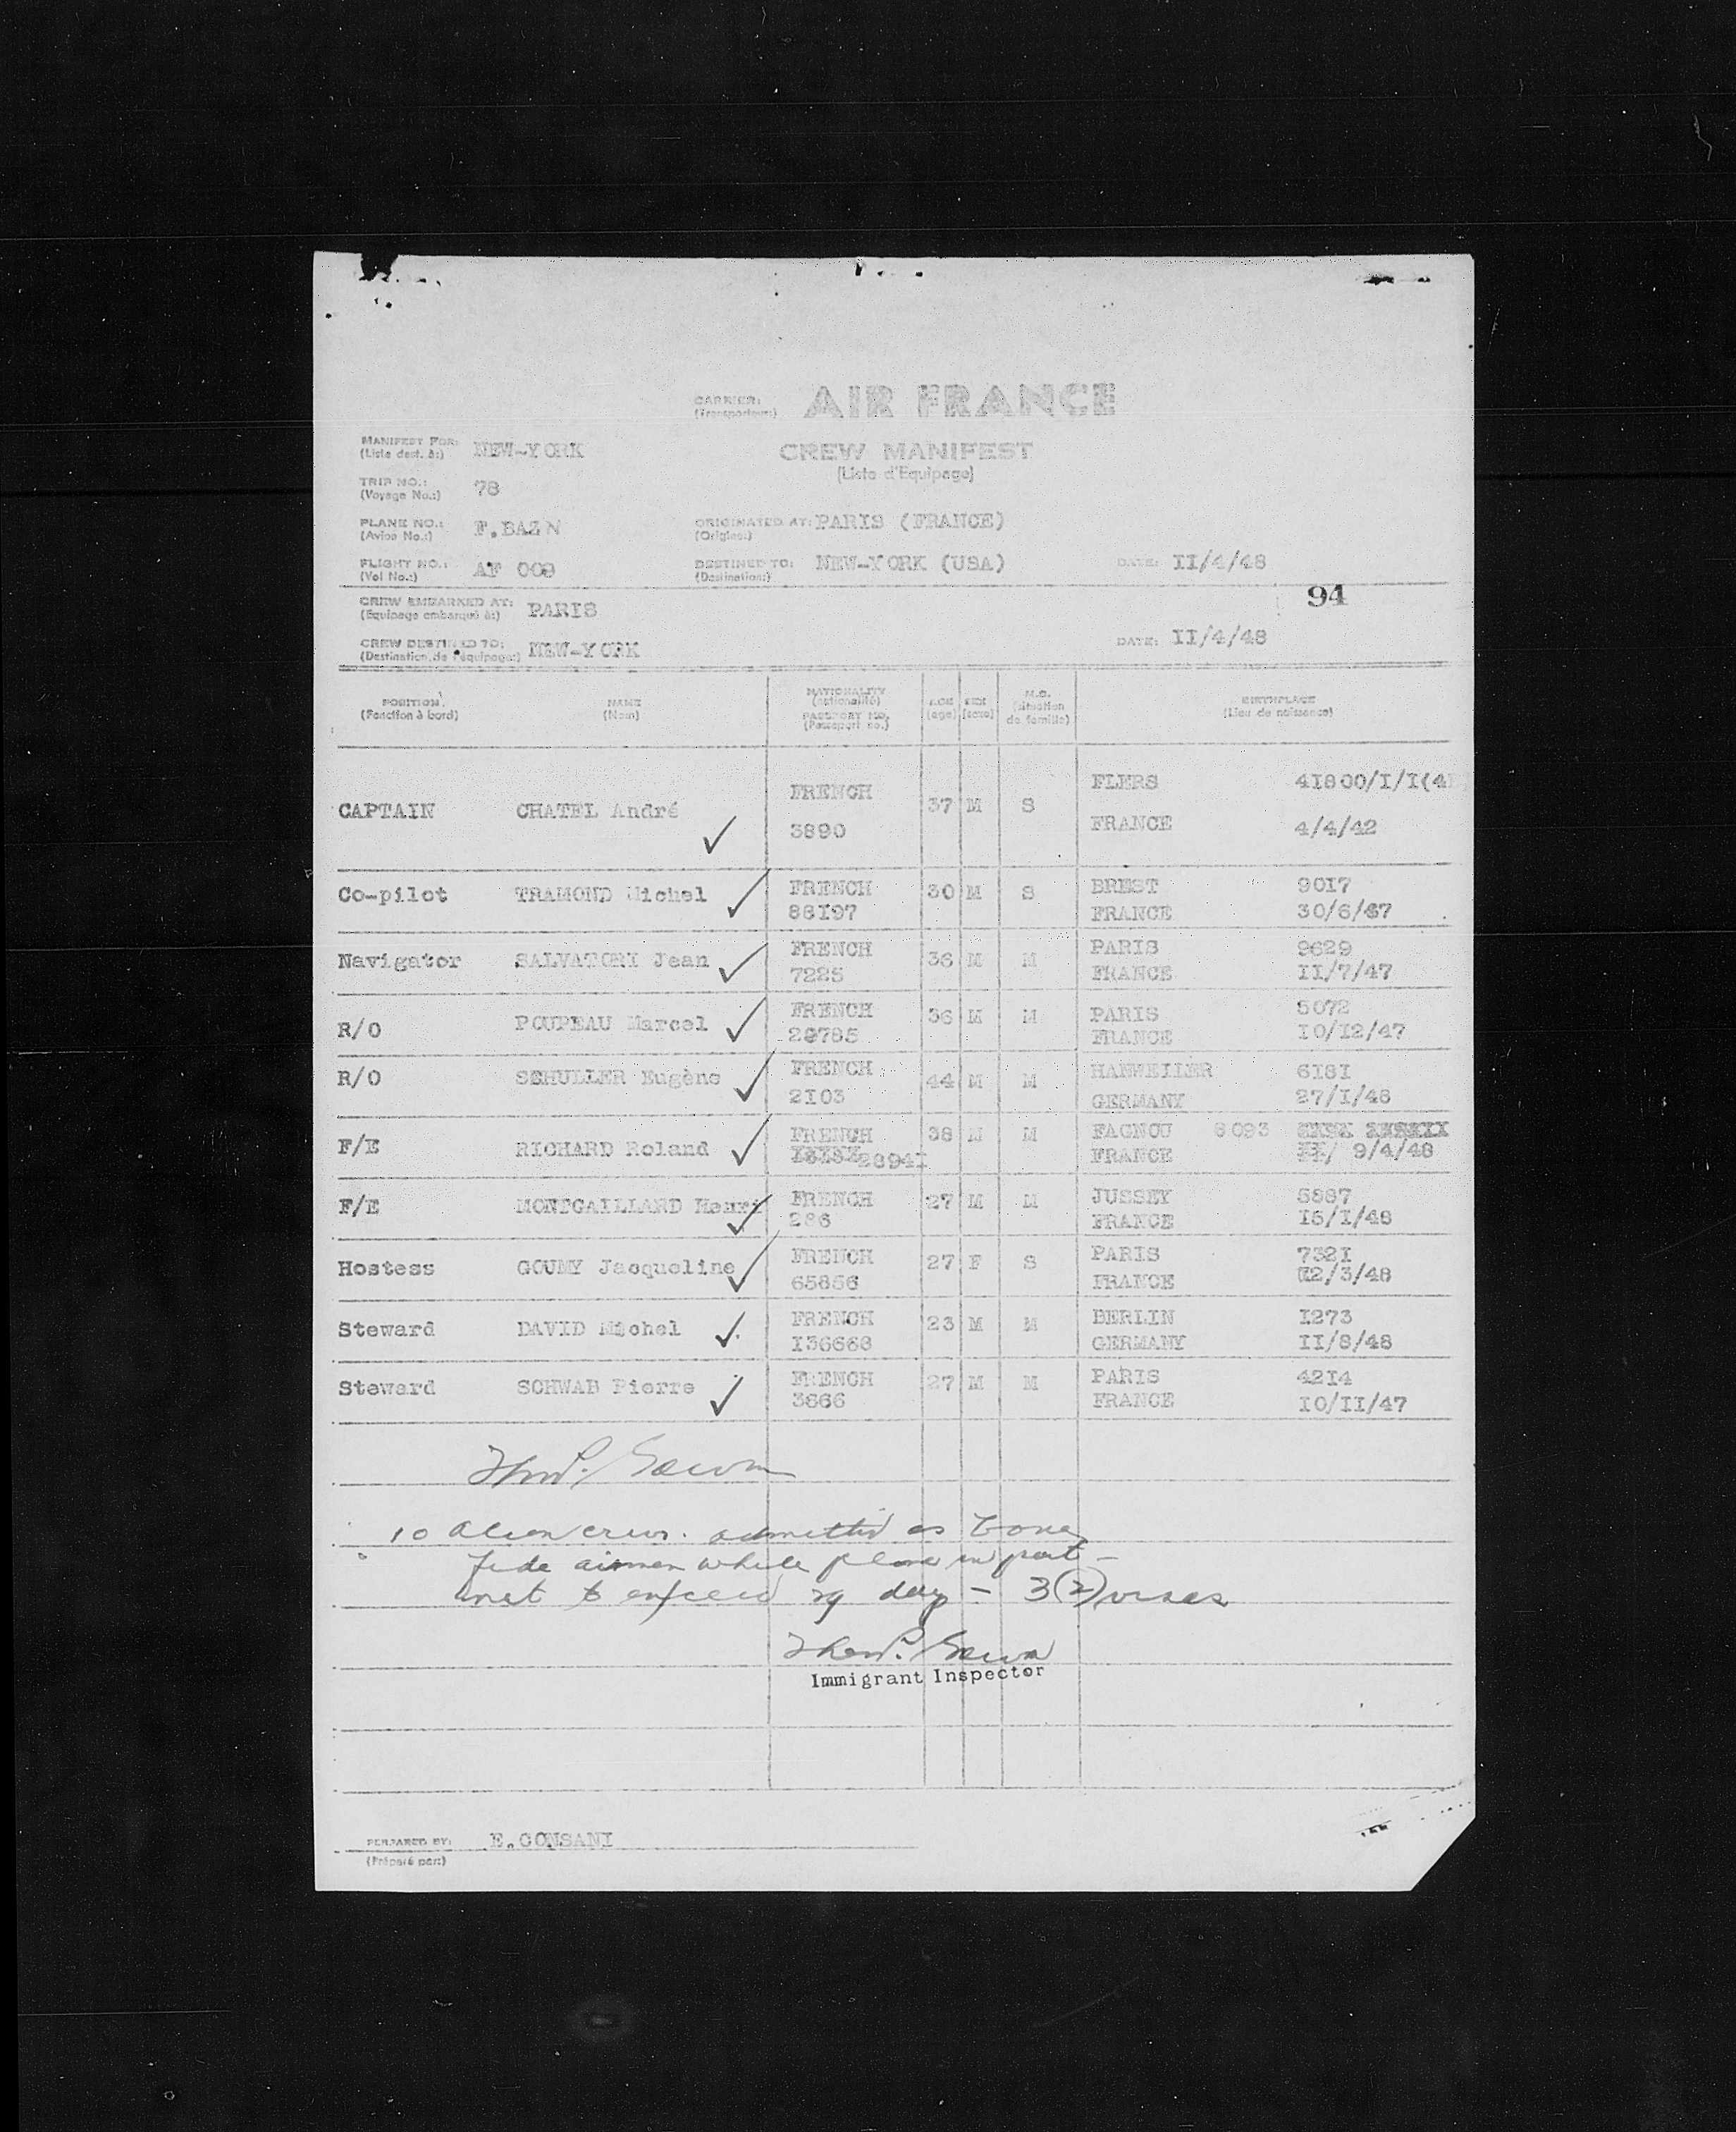 CARRIER: AIR FRANCE
(Transporteur:)
MANIFEST FOR: NEW-YORK CREW MANIFEST
(Liste dest. à:) (Liste d'Equipage)
TRIP NO.: 78
(Voyage No.:)
PLANE NO.: F.BAZN ORIGINATED AT: PARIS (FRANCE)
(Avion No.:) (Origine:)
FLIGHT NO.: AF 009 DESTINED TO: NEW-YORK (USA) DATE: II/4/48
(Vol No.:) (Destination:)
94
CREW EMBARKED AT: PARIS
(Equipage embarqué à:)
CREW DESTINED TO: NEW-YORK DATE: II/4/48
(Destination de l'équipage:)
POSITION NAME NATIONALITY AGE SEX M.C. BIRTHPLACE
(Fonction à bord) (Nom) (nationalité) (age) (sexe) (situation de famille) (Lieu de naissance)
PASSPORT NO.
(Passeport no.)
FRENCH FLERS 41800/I/I(4
CAPTAIN CHATEL André 37 M S
3890 FRANCE 4/4/42
Co-pilot TRAMOND Michel FRENCH 30 M S BREST 9017
88197 FRANCE 30/6/
Navigator SALVATORI Jean FRENCH 36 M M PARIS 9629
7225 FRANCE II/7/47
R/O POUPEAU Marcel FRENCH 36 M M PARIS 5072
29785 FRANCE 10/12/47
R/O SCHULLER Eugène FRENCH 44 M M HANWEILER 6181
2103 GERMANY 27/I/48
F/E RICHARD Roland FRENCH 38 M M FAGNOU 8093
28941 FRANCE 9/4/48
F/E MONTGAILLARD Henri FRENCH 27 M M JUSSEY 5887
286 FRANCE 15/I/48
Hostess GOUMY Jacqueline FRENCH 27 F S PARIS 7321
65856 FRANCE 2/3/48
Steward DAVID Michel FRENCH 23 M M BERLIN 1273
136668 GERMANY II/8/48
Steward SCHWAB Pierre FRENCH 27 M M PARIS 4214
3866 FRANCE 10/II/47
10 alien crew. admitted as bona
fide airmen while plane in port -
not to exceed 29 days - 3(2) visas
Immigrant Inspector
PERPARED BY: E.CONSANI
(Préparé par:)